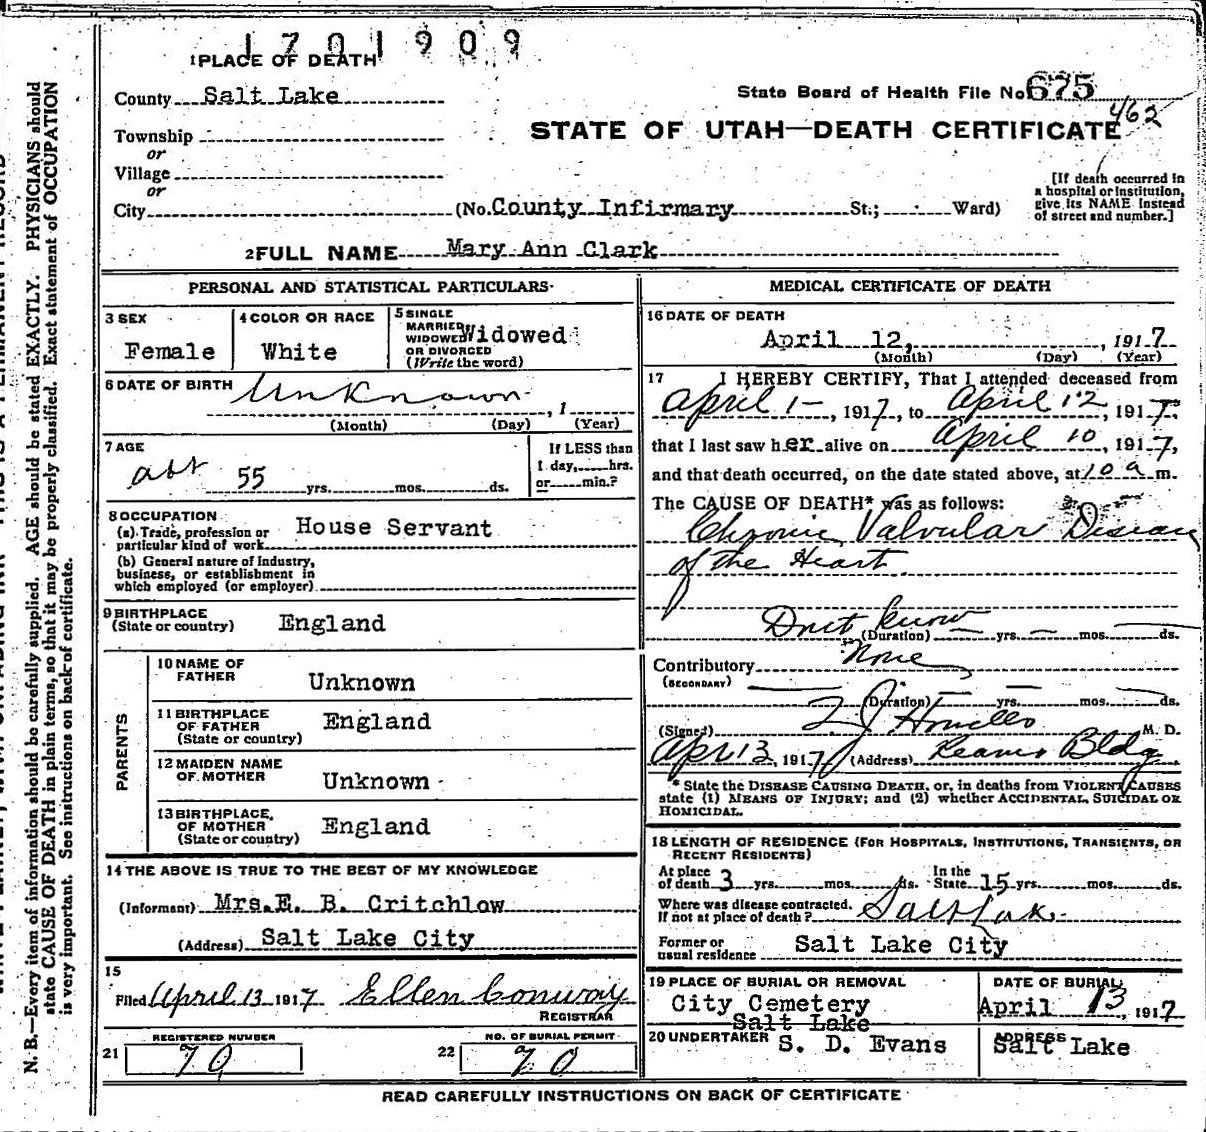 1701909
1 PLACE OF DEATH
County Salt Lake
State Board of Health File No. 675
462
Township
STATE OF UTAH—DEATH CERTIFICATE
or
Village
or
City (No. County Infirmary St.; Ward)
[If death occurred in
a hospital or institution,
give its NAME instead
of street and number.]
2 FULL NAME Mary Ann Clark
PERSONAL AND STATISTICAL PARTICULARS
3 SEX
Female
4 COLOR OR RACE
White
5 SINGLE
MARRIED
WIDOWED
OR DIVORCED
(Write the word)
Widowed
6 DATE OF BIRTH Unknown
, 1
(Month) (Day) (Year)
7 AGE
abt 55 yrs. mos. ds.
If LESS than
1 day, hrs.
or min.?
8 OCCUPATION
(a) Trade, profession or
particular kind of work House Servant
(b) General nature of Industry,
business, or establishment in
which employed (or employer)
9 BIRTHPLACE
(State or country) England
PARENTS
10 NAME OF
FATHER Unknown
11 BIRTHPLACE
OF FATHER
(State or country) England
12 MAIDEN NAME
OF MOTHER Unknown
13 BIRTHPLACE
OF MOTHER
(State or country) England
14 THE ABOVE IS TRUE TO THE BEST OF MY KNOWLEDGE
(Informant) Mrs. E. B. Critchlow
(Address) Salt Lake City
15
Filed April 13 1917 Ellen Conway
REGISTRAR
REGISTERED NUMBER
21 70
NO. OF BURIAL PERMIT
22 70
MEDICAL CERTIFICATE OF DEATH
16 DATE OF DEATH
April 12, , 1917
(Month) (Day) (Year)
17 I HEREBY CERTIFY, That I attended deceased from
April 1-, 1917, to April 12, 1917,
that I last saw her alive on April 10, 1917,
and that death occurred, on the date stated above, at 10 a m.
The CAUSE OF DEATH* was as follows:
Chronic Valvular Disease
of the Heart
Dont know
(Duration) yrs. mos. ds.
Contributory None
(SECONDARY)
(Duration) yrs. mos. ds.
(Signed) M. D.
Apr 13, 1917 (Address) Kearns Bldg.
* State the DISEASE CAUSING DEATH, or, in deaths from VIOLENT CAUSES
state (1) MEANS OF INJURY; and (2) whether ACCIDENTAL, SUICIDAL OR
HOMICIDAL.
18 LENGTH OF RESIDENCE (FOR HOSPITALS, INSTITUTIONS, TRANSIENTS, OR
RECENT RESIDENTS)
At place
of death 3 yrs. mos. ds.
In the
State 15 yrs. mos. ds.
Where was disease contracted,
If not at place of death? Salt Lak
Former or
usual residence Salt Lake City
19 PLACE OF BURIAL OR REMOVAL
City Cemetery
Salt Lake
DATE OF BURIAL
April 13, 1917
20 UNDERTAKER
S. D. Evans
ADDRESS
Salt Lake
READ CAREFULLY INSTRUCTIONS ON BACK OF CERTIFICATE
N. B.—Every item of information should be carefully supplied. AGE should be stated EXACTLY. PHYSICIANS should
state CAUSE OF DEATH in plain terms, so that it may be properly classified. Exact statement of OCCUPATION
is very important. See instructions on back of certificate.